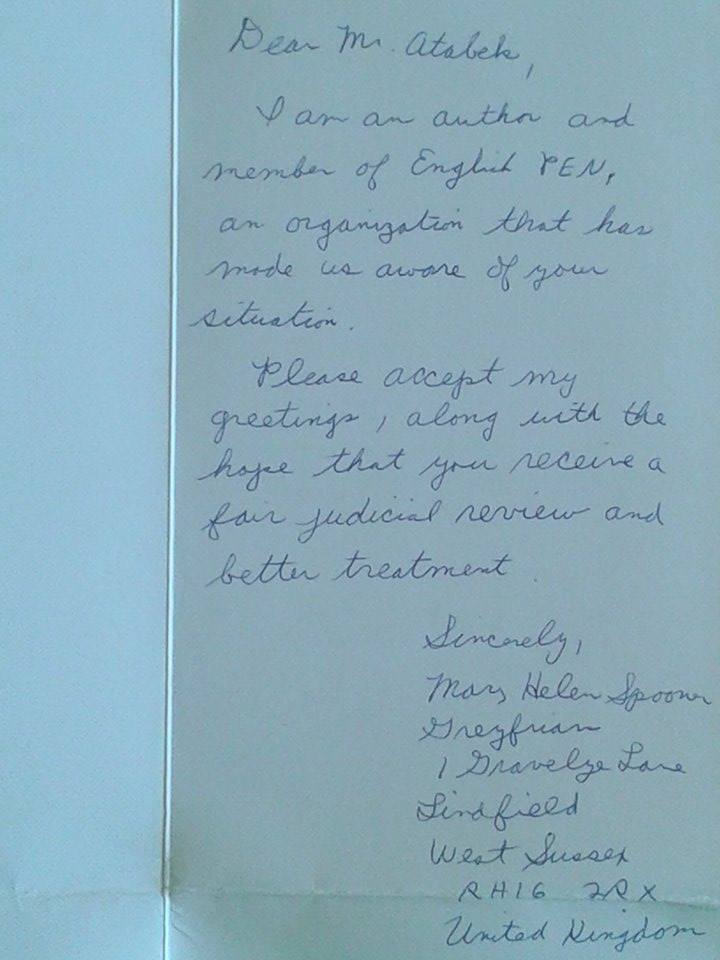 Dear Mr. Atabek,
I am an author and
member of English PEN,
an organization that has
made us aware of your
situation.
Please accept my
greetings, along with the
hope that you receive a
fair judicial review and
better treatment.
Sincerely,
Mary Helen Spooner
Greyfriars
1 Gravelye Lane
Lindfield
West Sussex
RH16 2RX
United Kingdom